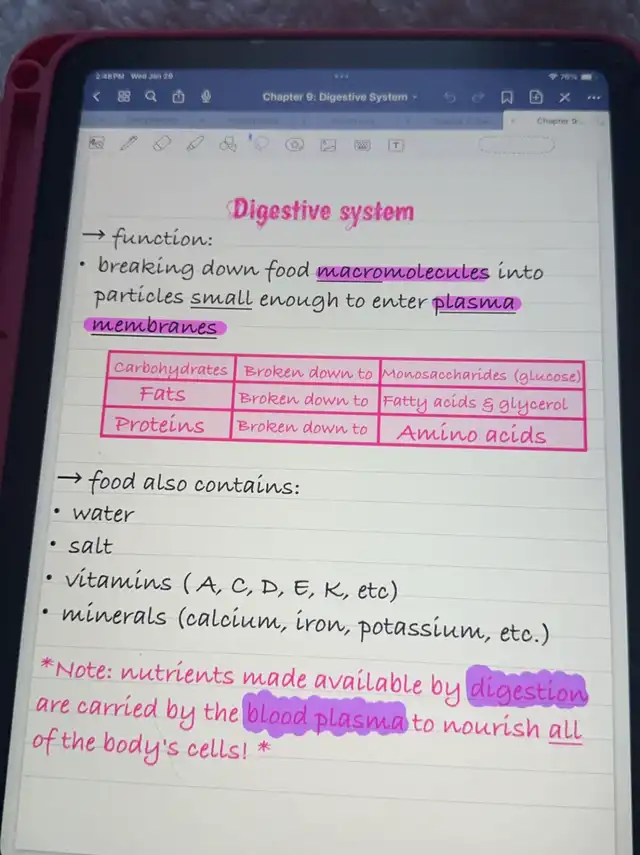 2:48 PM Wed Jan 26
76%
Chapter 9: Digestive System
Chapter 9:
Digestive system
→ function:
• breaking down food macromolecules into
particles small enough to enter plasma
membranes
Carbohydrates Broken down to Monosaccharides (glucose)
Fats Broken down to Fatty acids & glycerol
Proteins Broken down to Amino acids
→ food also contains:
• water
• salt
• vitamins (A, C, D, E, K, etc)
• minerals (calcium, iron, potassium, etc.)
*Note: nutrients made available by digestion
are carried by the blood plasma to nourish all
of the body's cells! *